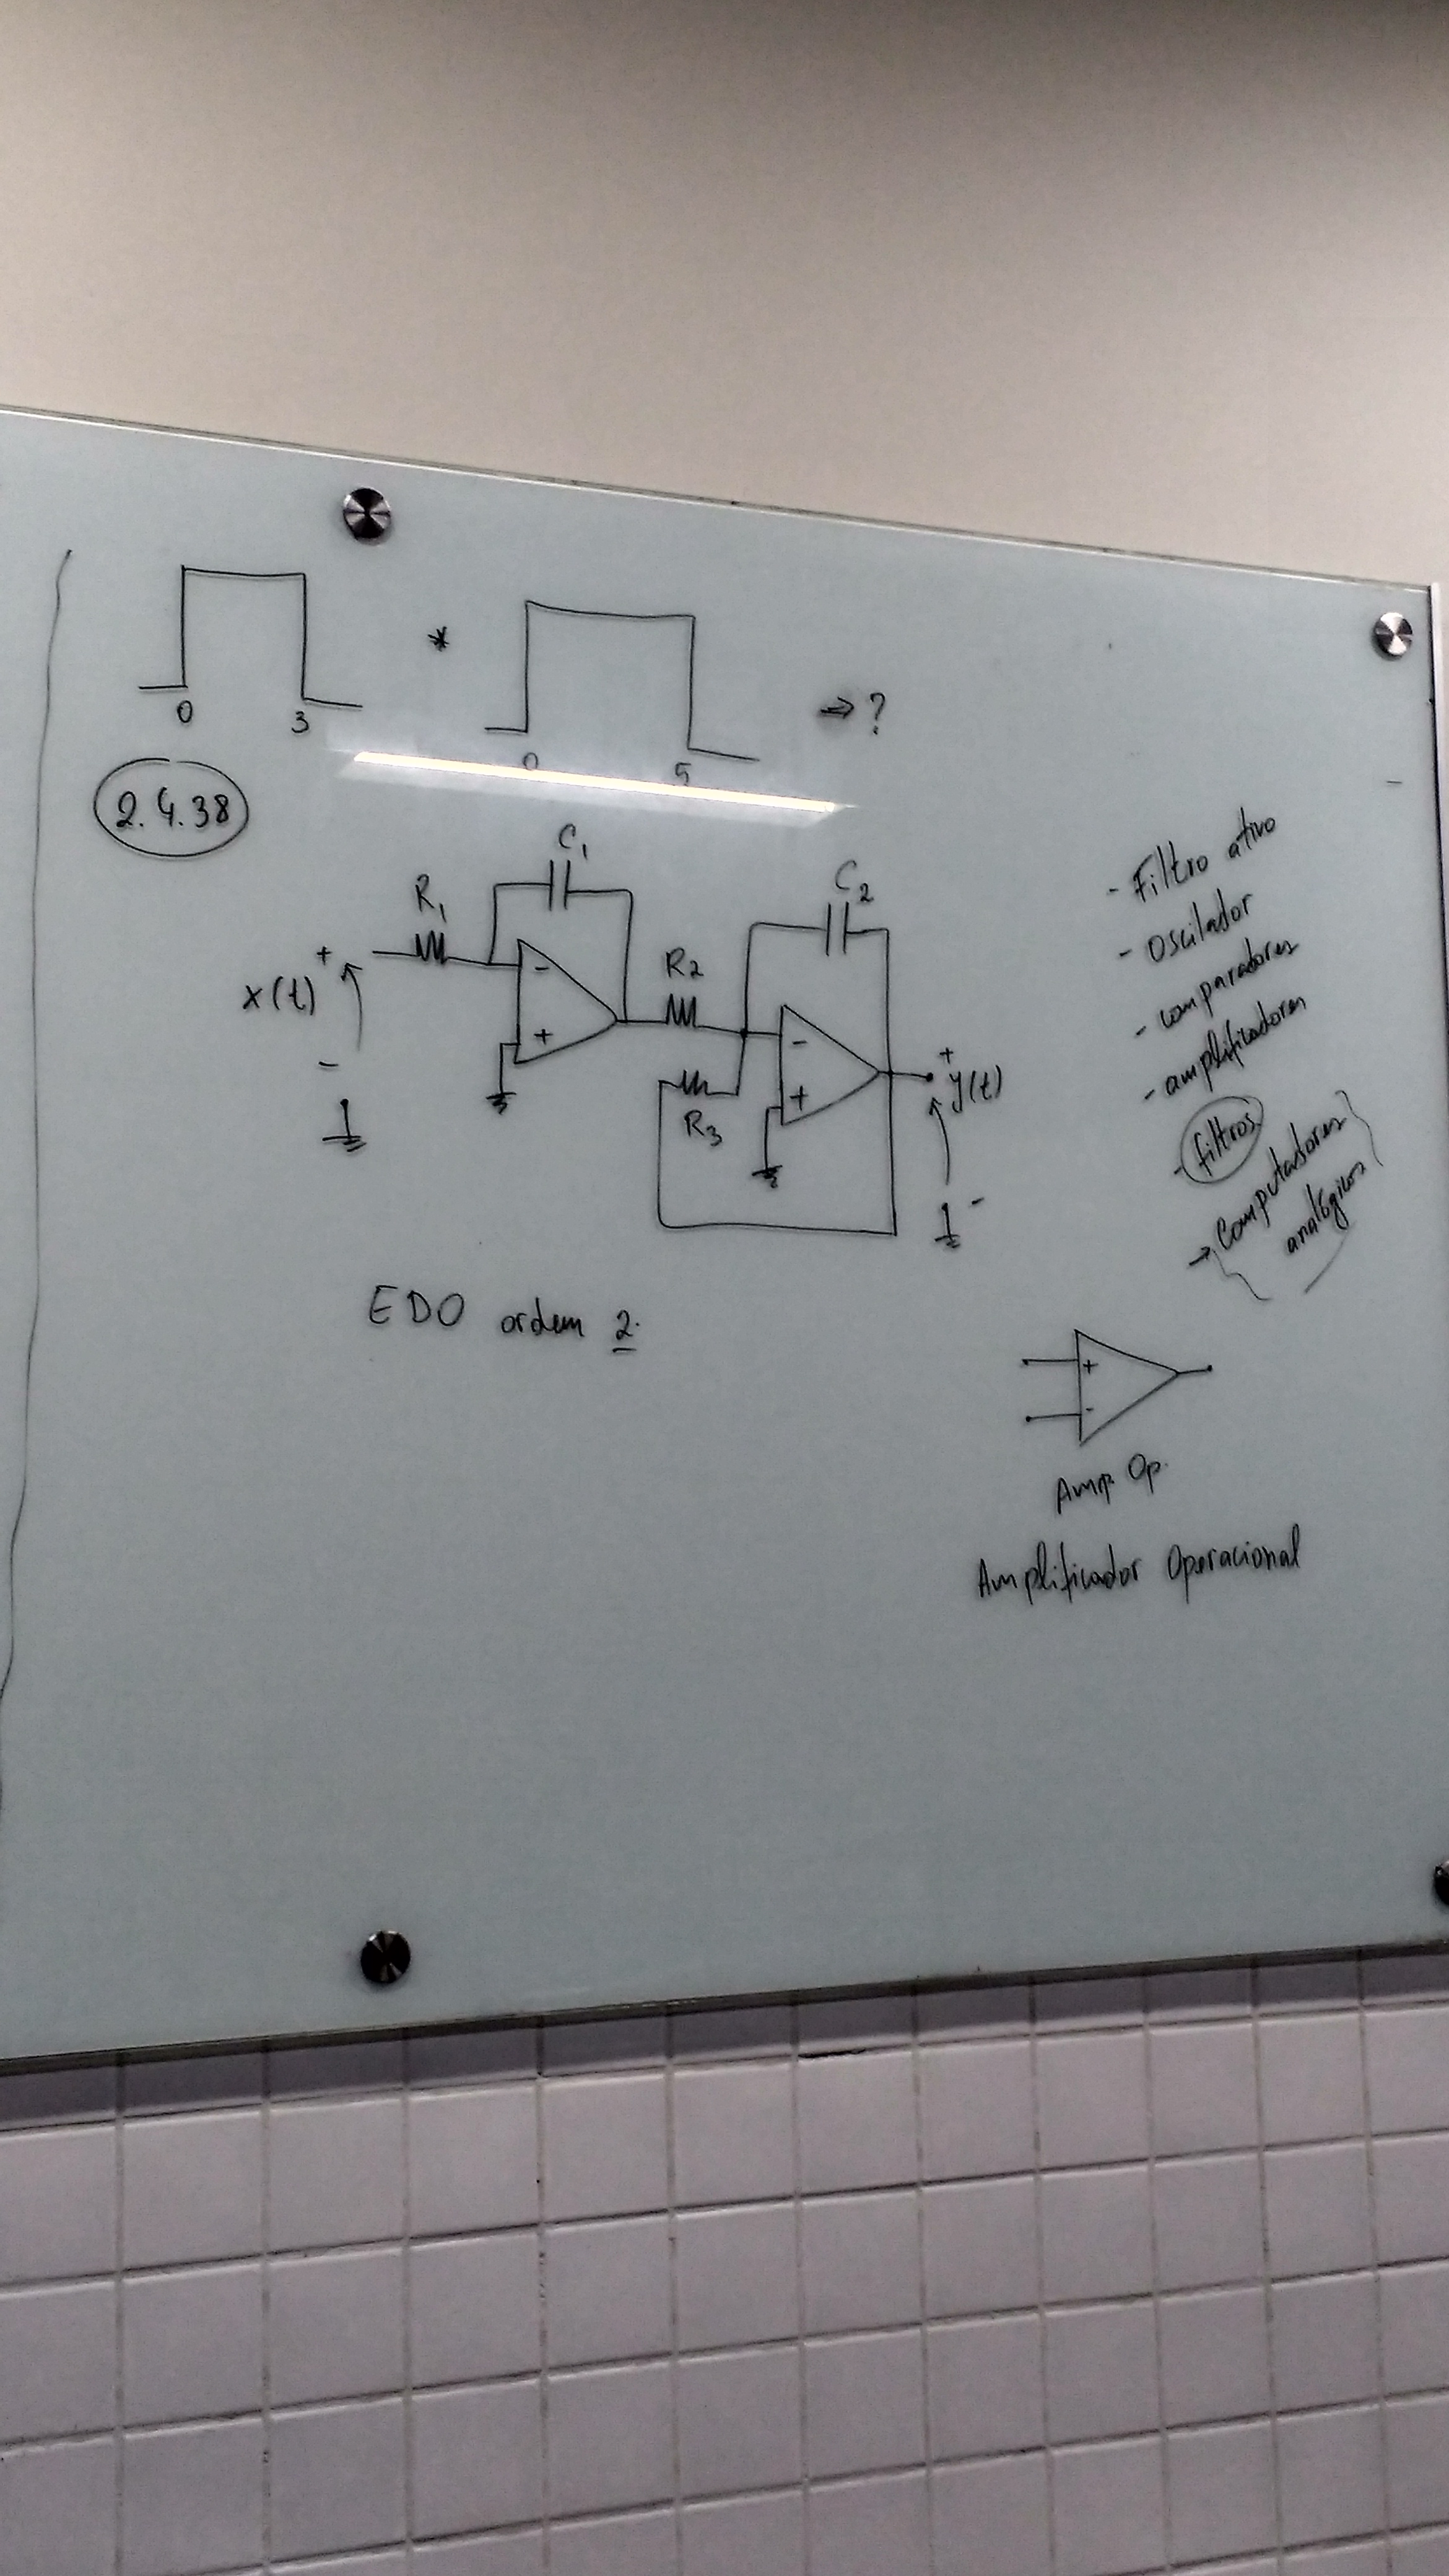 0 3 * 0 5 ⇒ ?
2.4.38
C1
R1
C2
x(t) + -
- +
R2
R3
- +
+ y(t) -
EDO ordem 2.
- Filtro ativo
- Oscilador
- comparadores
- amplificadores
- filtros
→ Computadores
analógicos
+
-
Amp. Op.
Amplificador Operacional